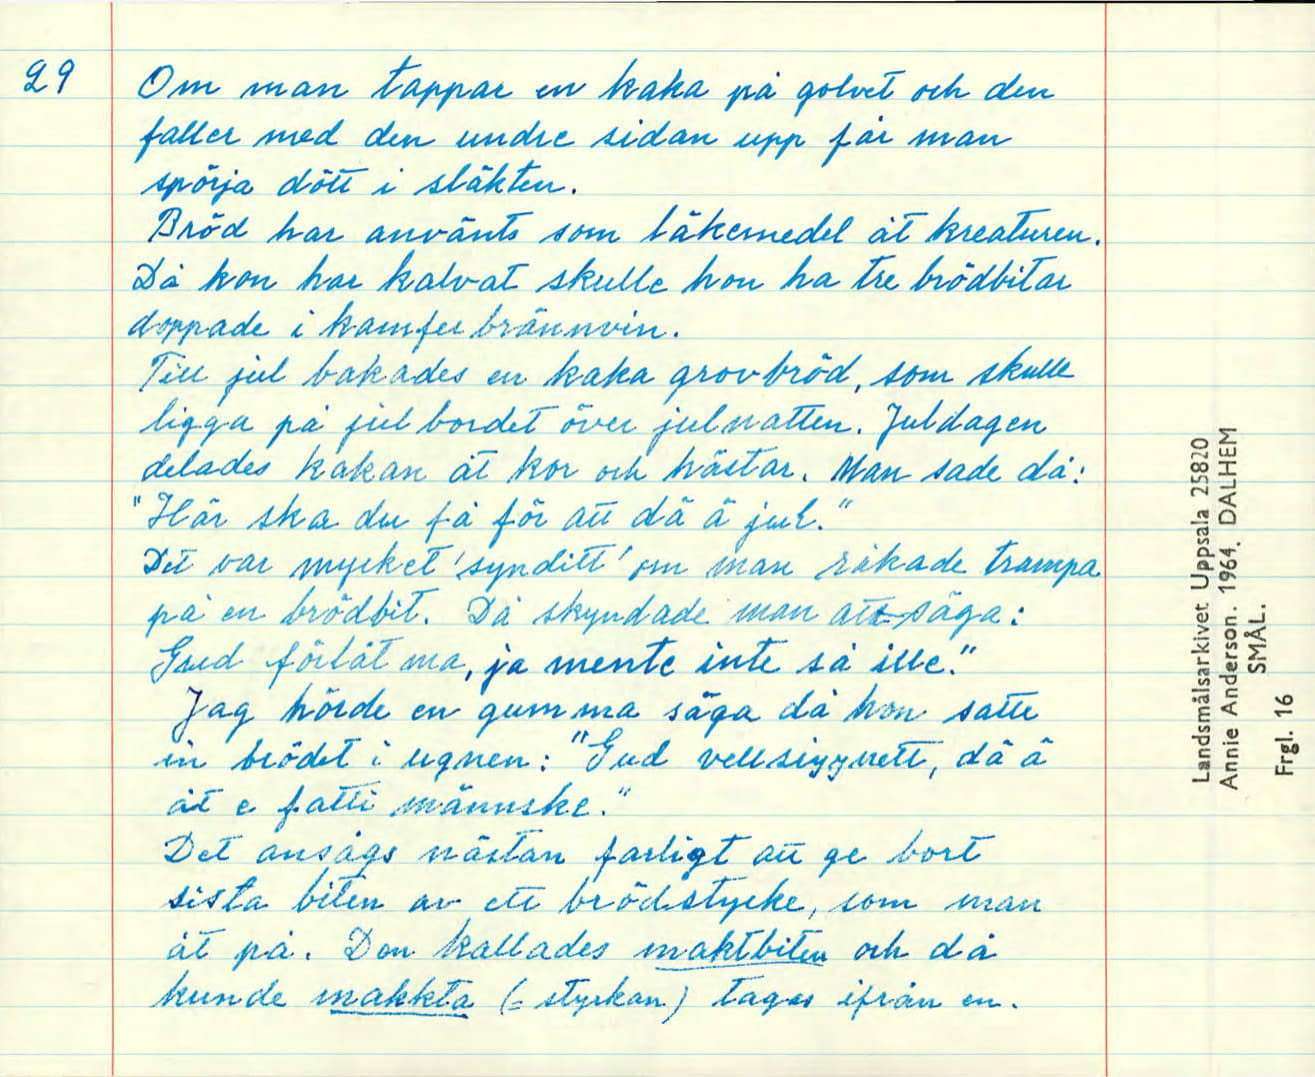 29
Om man tappar en kaka på golvet och den
faller med den undre sidan upp får man
spörja dött i släkten.
Bröd har använts som läkemedel åt kreaturen.
Då kon har kalvat skulle hon ha tre brödbitar
doppade i kamferbrännvin.
Till jul bakades en kaka grovbröd, som skulle
ligga på julbordet över julnatten. Juldagen
delades kakan åt kor och hästar. Man sade då:
"Här ska du få för att dä ä jul."
Det var mycket 'synditt' om man råkade trampa
på en brödbit. Då skyndade man att säga:
Gud förlåt ma, ja mente inte så ille."
Jag hörde en gumma säga då hon satte
in brödet i ugnen: "Gud vellsiggnett, dä ä
åt e fatti männske."
Det ansågs nästan farligt att ge bort
sista biten av ett brödstycke, som man
åt på. Den kallades maktbiten och då
kunde makkta (= styrkan) tagas ifrån en.
Landsmålsarkivet Uppsala 25820
Annie Anderson. 1964. DALHEM
SMÅL.
Frgl. 16